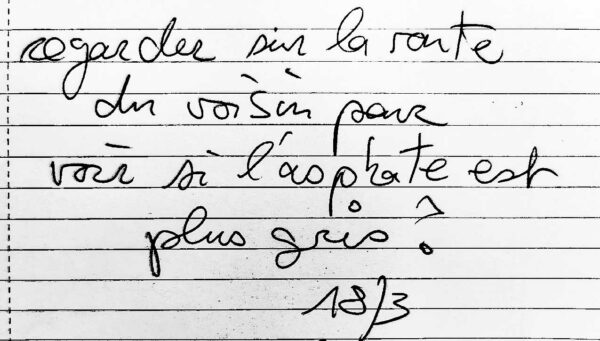 regarder sur la route
du voisin pour
voir si l'asphate est
plus gris?
18/3